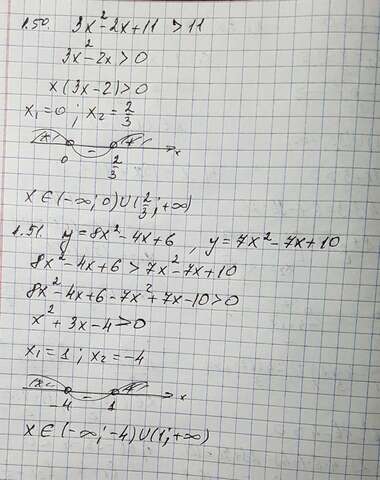 1.50. 3x²-2x+11 > 11
3x²-2x > 0
x(3x-2) > 0
x₁=0 ; x₂ = 2/3
+ - + x
0 2/3
x ∈ (-∞; 0) ∪ (2/3; +∞)
1.51. y = 8x²-4x+6 , y = 7x²-7x+10
8x²-4x+6 > 7x²-7x+10
8x²-4x+6-7x²+7x-10 > 0
x²+3x-4 > 0
x₁=1 ; x₂=-4
+ - + x
-4 1
x ∈ (-∞; -4) ∪ (1; +∞)